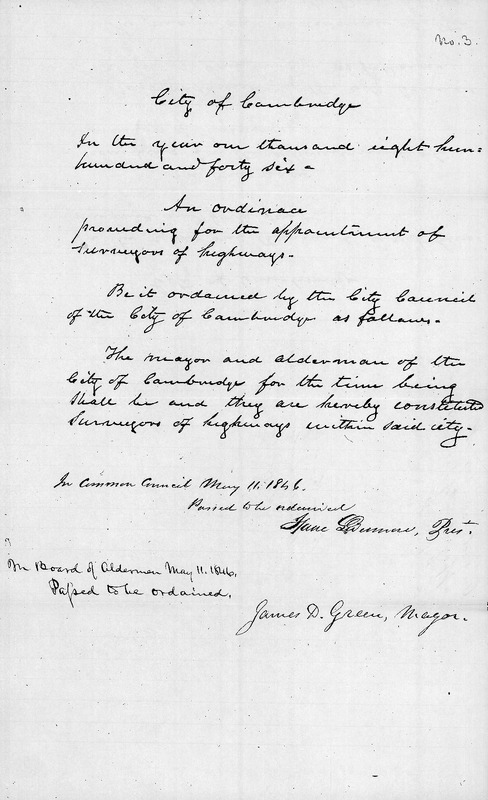 No. 3.
City of Cambridge
In the year one thousand eight hun=
hundred and forty six =
An ordinace
providing for the appointment of
Surveyors of highways.
Be it ordained by the City Council
of the City of Cambridge as follows.
The mayor and alderman of the
City of Cambridge for the time being
shall be and they are hereby constituted
Surveyors of highways within said city.
In Common Council May 11. 1846.
Passed to be ordained
Isaac Livermore, Prest.
In Board of Alderman May 11. 1846.
Passed to be ordained.
James D. Green, Mayor.